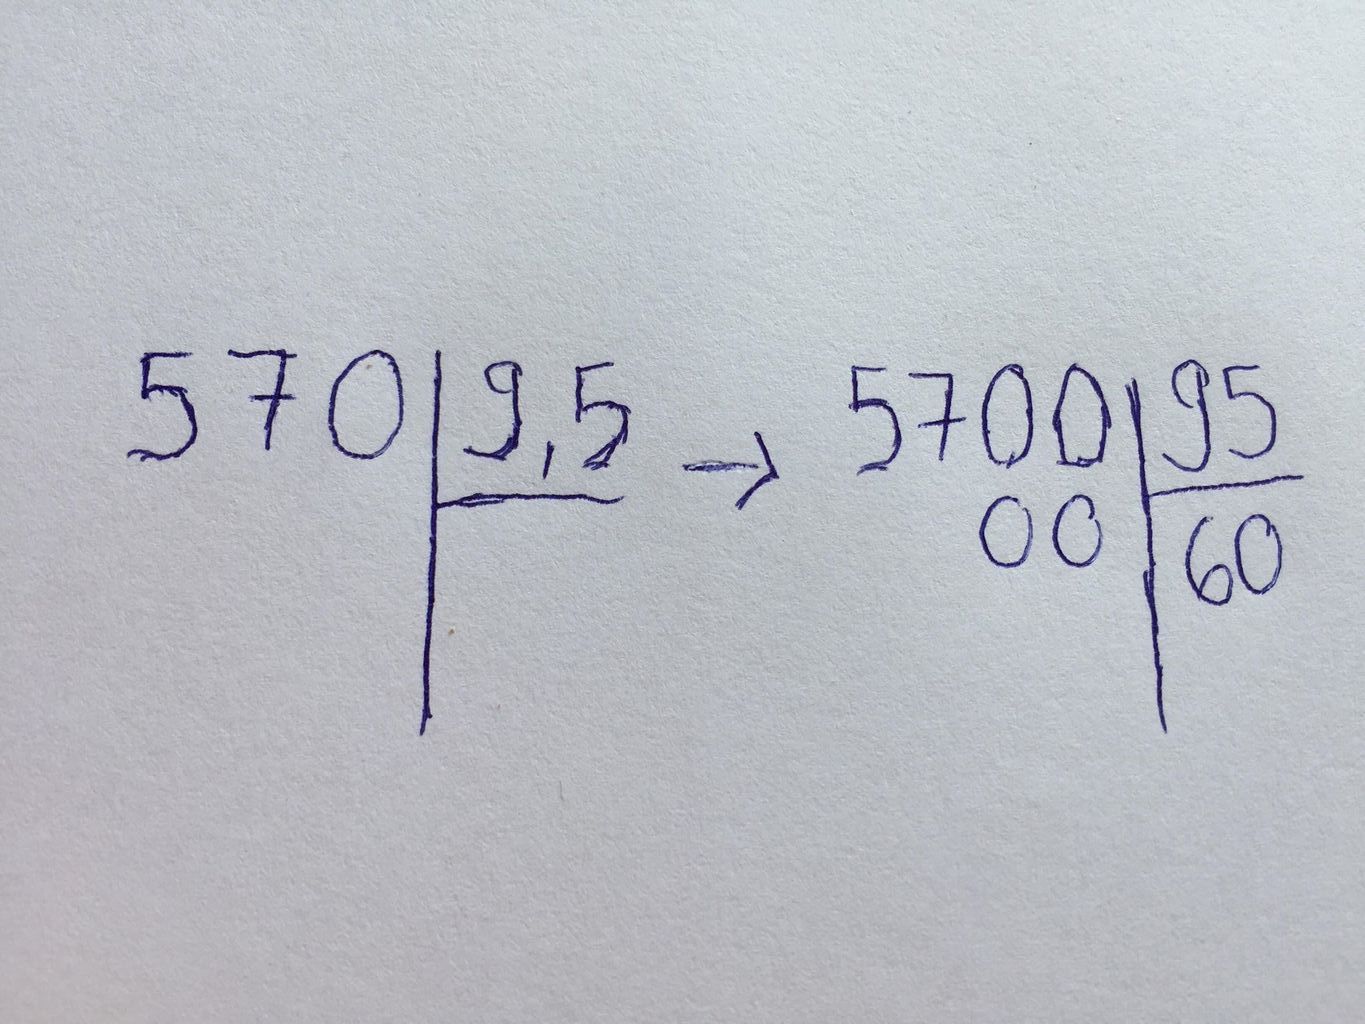 570 9,5 → 5700 95
00 60